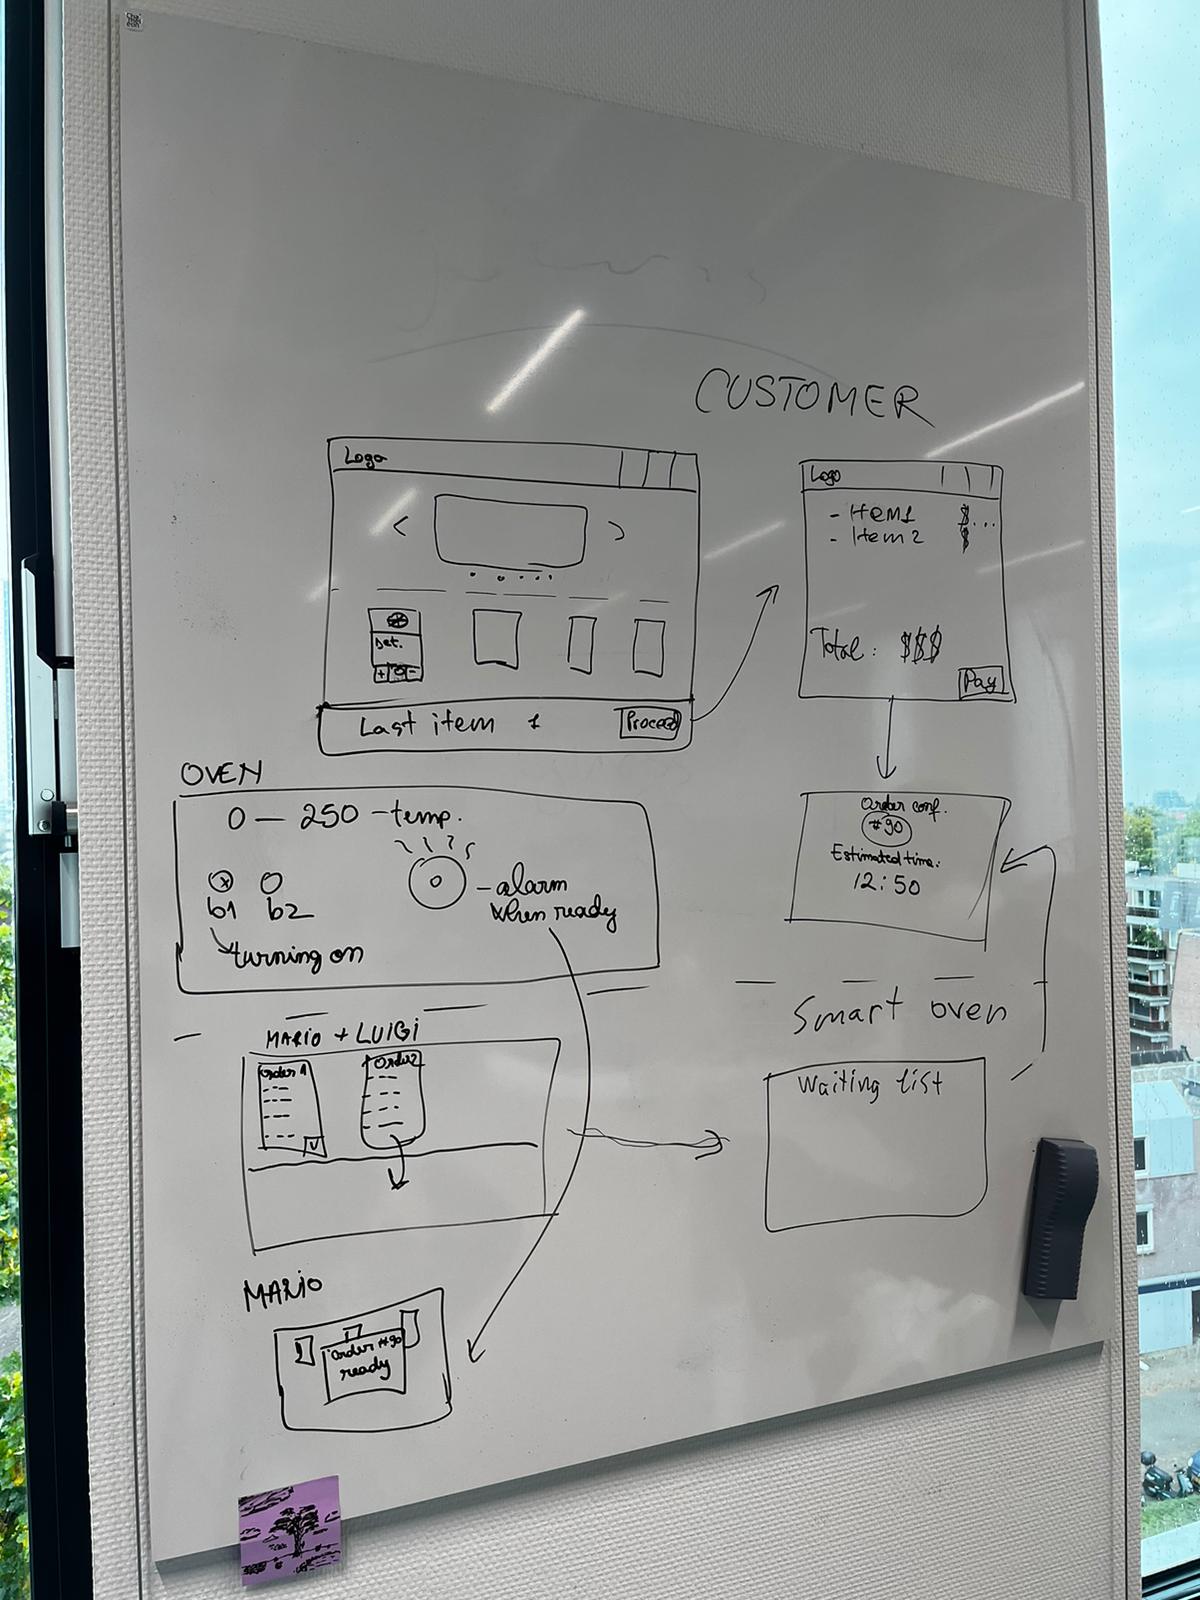 CUSTOMER
Logo
Det.
+ 0 -
Last item 1
Proceed
Logo
- Item1 $...
- Item 2 $
Total: $$$
Pay
Order conf.
#90
Estimated time:
12:50
OVEN
0 — 250 - temp.
b1 b2
turning on
- alarm
when ready
Smart oven
Waiting list
MARIO + LUIGI
Order 1
Order2
MARIO
Order #90
ready